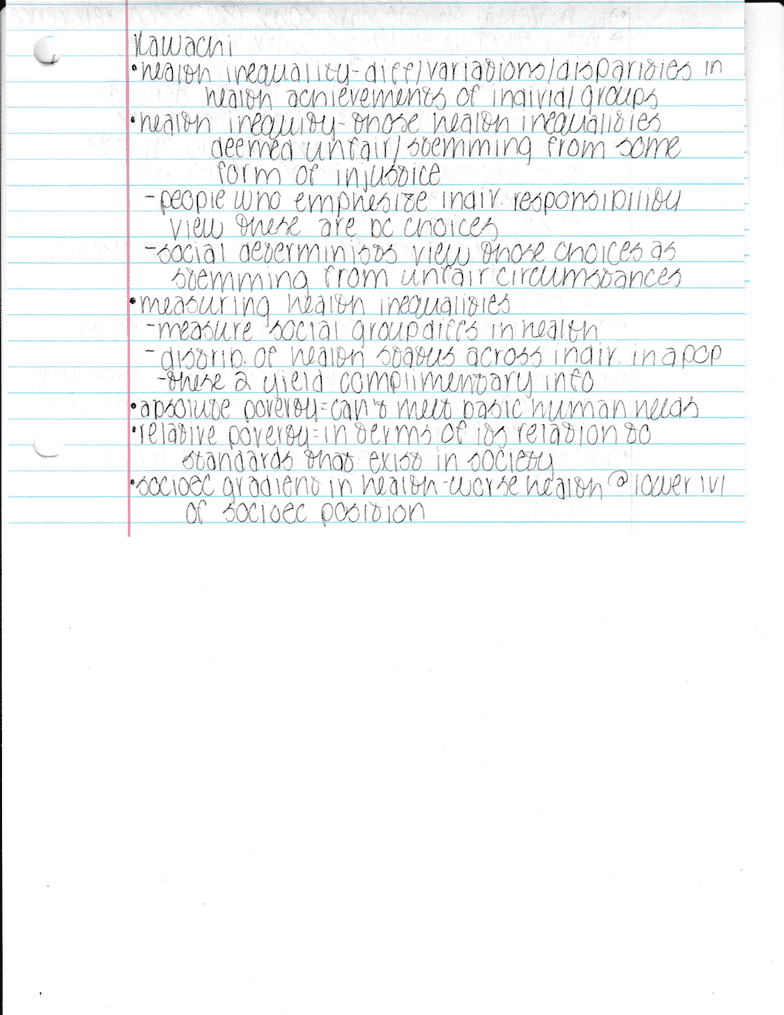 Kawachi
•health inequality-diff/variations/disparities in
health achievements of indiv/a/groups
•health inequity-those health inequalities
deemed unfair/stemming from some
form of injustice
-people who emphesize indiv. responsibility
view these are bc choices
-social determinists view those choices as
stemming from unfair circumstances
•measuring health inequalities
-measure social group diffs in health
-distrib. of health status across indiv. in a pop
-these 2 yield complimentary info
•absolute poverty=can't meet basic human needs
•relative poverty=in terms of its relation to
standards that exist in society
•socioec gradient in health-worse health @ lower lvl
of socioec position